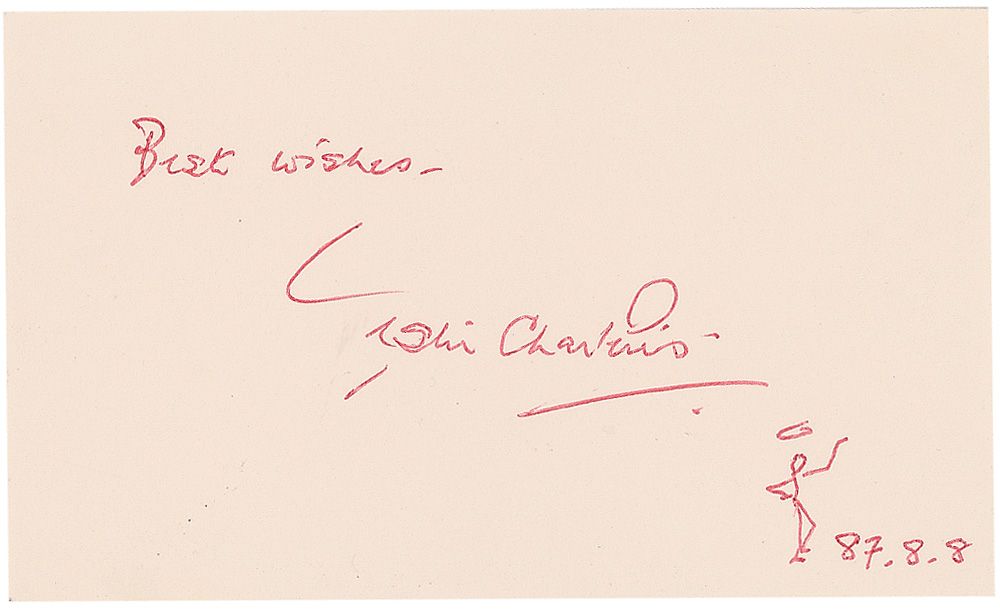 Best wishes -
Leslie Charteris
87.8.8